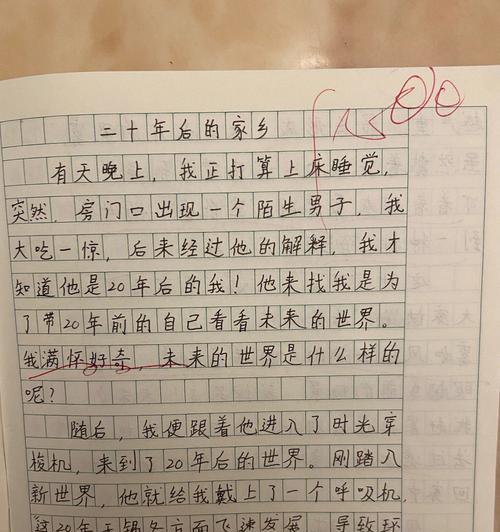 二十年后的家乡
有天晚上，我正打算上床睡觉，
突然，房门口出现一个陌生男子，我
大吃一惊，后来经过他的解释，我才
知道他是20年后的我！他来找我是为
了带20年前的自己看看未来的世界。
我满怀好奇，未来的世界是什么样的
呢？
随后，我便跟着他进入了时光穿
梭机，来到了20年后的世界。刚踏入
新世界，他就给我戴上了一个呼吸机，
这20年于锡各方面飞速发展，导致环